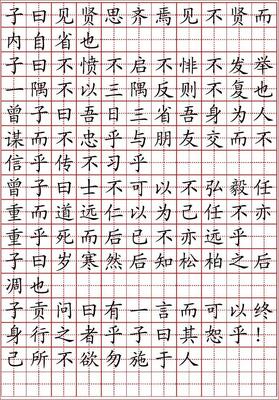 子曰见贤思齐焉见不贤而
内自省也
子曰不愤不启不悱不发举
一隅不以三隅反则不复也
曾子曰吾日三省吾身为人
谋而不忠乎与朋友交而不
信乎传不习乎
曾子曰士不可以不弘毅任
重而道远仁以为己任不亦
重乎死而后已不亦远乎
子曰岁寒然后知松柏之后
凋也
子贡问曰有一言而可以终
身行之者乎子曰其恕乎！
己所不欲勿施于人